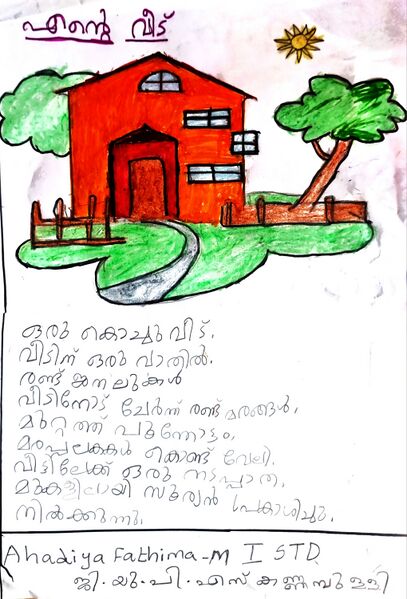 എന്റെ വീട്
ഒരു കൊച്ചു വീട്.
വീടിന് ഒരു വാതിൽ.
രണ്ട് ജനലുകൾ
വീടിനോട് ചേർന്ന് രണ്ട് മരങ്ങൾ.
മുറ്റത്ത് പൂന്തോട്ടം.
മരപ്പലകകൾ കൊണ്ട് വേലി.
വീട്ടിലേക്ക് ഒരു നടപ്പാത.
മുകളിലായി സൂര്യൻ പ്രകാശിച്ചു.
നിൽക്കുന്നു.
Ahadiya Fathima-M I STD
ജി.യു.പി.എസ് കണ്ണമ്പുള്ളി